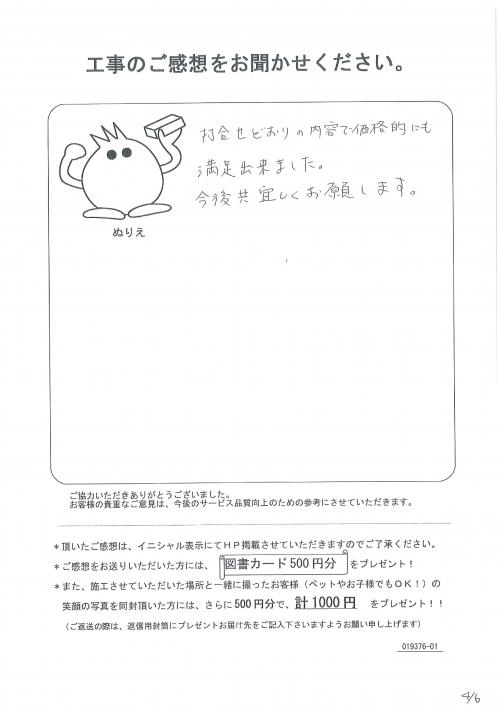 工事のご感想をお聞かせください。
打合せどおりの内容で価格的にも
満足出来ました。
今後共宜しくお願します。
ぬりえ
ご協力いただきありがとうございました。
お客様の貴重なご意見は、今後のサービス品質向上のための参考にさせていただきます。
*頂いたご感想は、イニシャル表示にてHP掲載させていただきますのでご了承ください。
*ご感想をお送りいただいた方には、図書カード500円分をプレゼント!
*また、施工させていただいた場所と一緒に撮ったお客様(ペットやお子様でもOK!)の
笑顔の写真を同封頂いた方には、さらに500円分で、計1000円 をプレゼント!!
(ご返送の際は、返信用封筒にプレゼントお届け先をご記入下さいますようお願い申し上げます)
019376-01
4/6